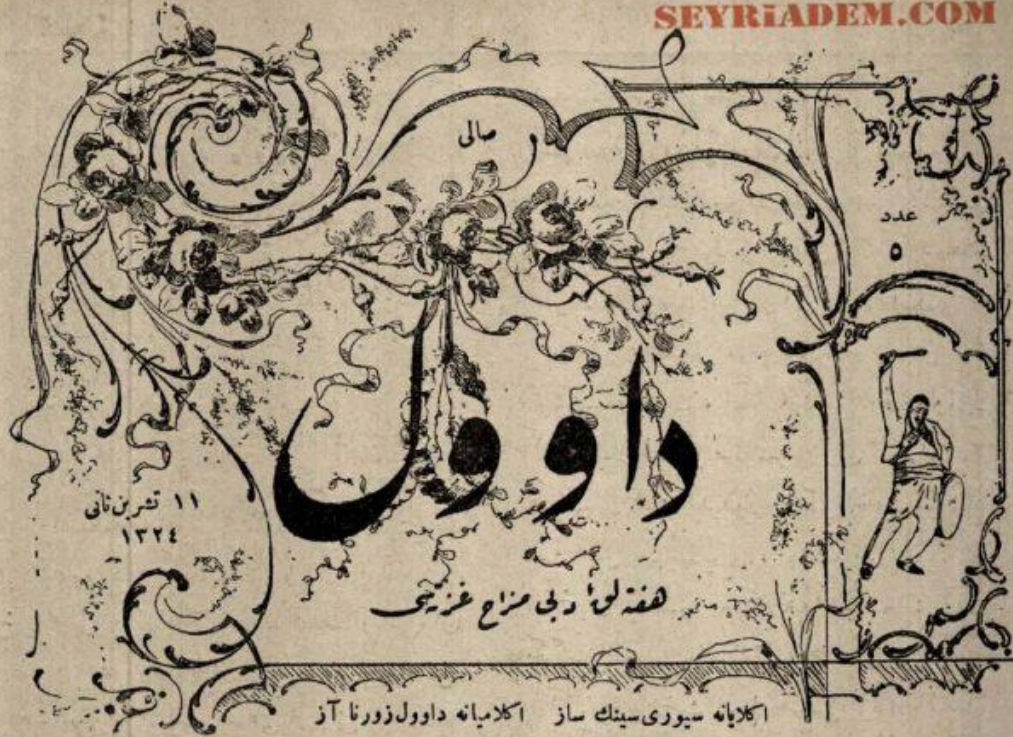 SEYRİADEM.COM
صالی
عدد
٥
داوول
١١ تشرین ثانی
١٣٢٤
هفته لق ادبی مزاح غزته سی
اكلایانه سیوری سینك ساز   اكلامیانه داوول زورنا آز